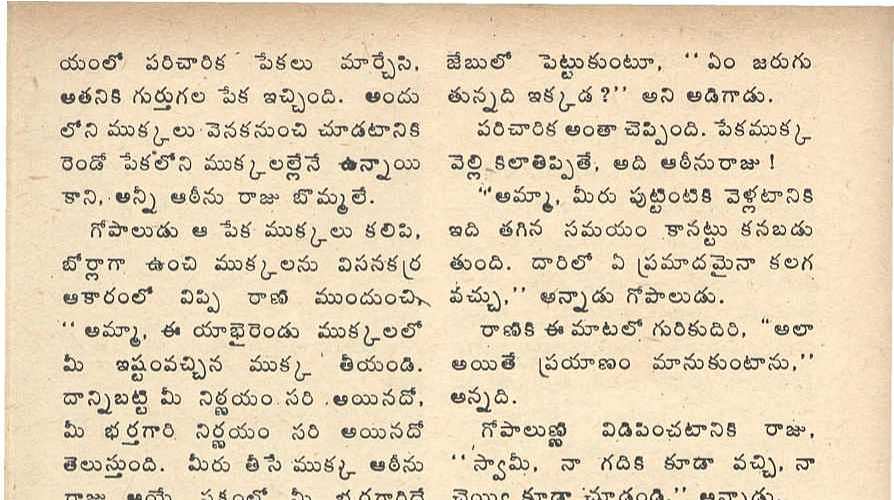 యంలో పరిచారిక పేకలు మార్చేసి,
అతనికి గుర్తుగల పేక ఇచ్చింది. అందు
లోని ముక్కలు వెనకనుంచి చూడటానికి
రెండో పేకలోని ముక్కలల్లేనే ఉన్నాయి
కాని, అన్నీ ఆఠీను రాజు బొమ్మలే.
గోపాలుడు ఆ పేక ముక్కలు కలిపి,
బోర్లాగా ఉంచి ముక్కలను విసనకర్ర
ఆకారంలో విప్పి రాణి ముందుంచి,
‘‘అమ్మా, ఈ యాభైరెండు ముక్కలలో
మీ ఇష్టంవచ్చిన ముక్క తీయండి.
దాన్నిబట్టి మీ నిర్ణయం సరి అయినదో,
మీ భర్తగారి నిర్ణయం సరి అయినదో
తెలుస్తుంది. మీరు తీసే ముక్క ఆఠీను
రాజు అయే పక్షంలో మీ భర్తగారిదే
జేబులో పెట్టుకుంటూ, ‘‘ఏం జరుగు
తున్నది ఇక్కడ?’’ అని అడిగాడు.
పరిచారిక అంతా చెప్పింది. పేకముక్క
వెల్లికిలాతిప్పితే, అది ఆఠీనురాజు!
‘‘అమ్మా, మీరు పుట్టింటికి వెళ్లటానికి
ఇది తగిన సమయం కానట్టు కనబడు
తుంది. దారిలో ఏ ప్రమాదమైనా కలగ
వచ్చు,’’ అన్నాడు గోపాలుడు.
రాణికి ఈ మాటలో గురికుదిరి, ‘‘అలా
అయితే ప్రయాణం మానుకుంటాను,’’
అన్నది.
గోపాలుణ్ణి విడిపించటానికి రాజు,
‘‘స్వామీ, నా గదికి కూడా వచ్చి, నా
చెయ్యి కూడా చూడండి,’’ అన్నాడు.